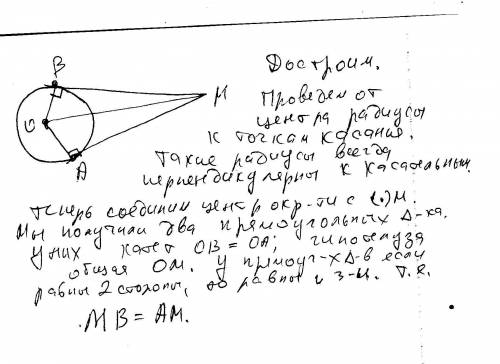 B
M
O
A
Достроим.
Проведем от
центра радиусы
к точкам касания.
Такие радиусы всегда
перпендикулярны к касательным.
Теперь соединим центр окр-ти с (.) M.
Мы получили два прямоугольных Δ-ка.
У них катет OB = OA; гипотенуза
общая OM. У прямоуг-х Δ-в если
равны 2 стороны, то равны и 3-и. Т.е.
MB = AM.